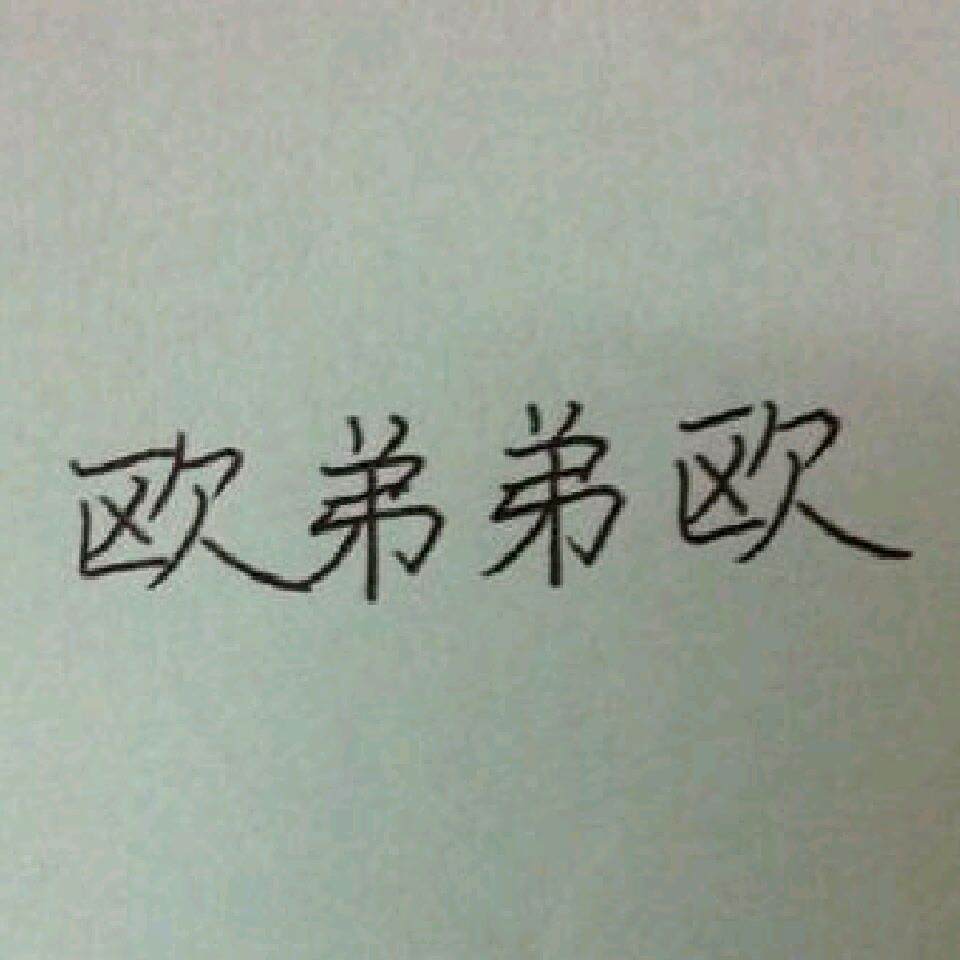 欧弟弟欧